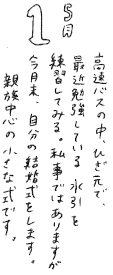 5月
1
高速バスの中、ひざ元で、
最近勉強している水引を
練習してみる。私事ではありますが
今月末、自分の結婚式をします。
親族中心の小さな式です。